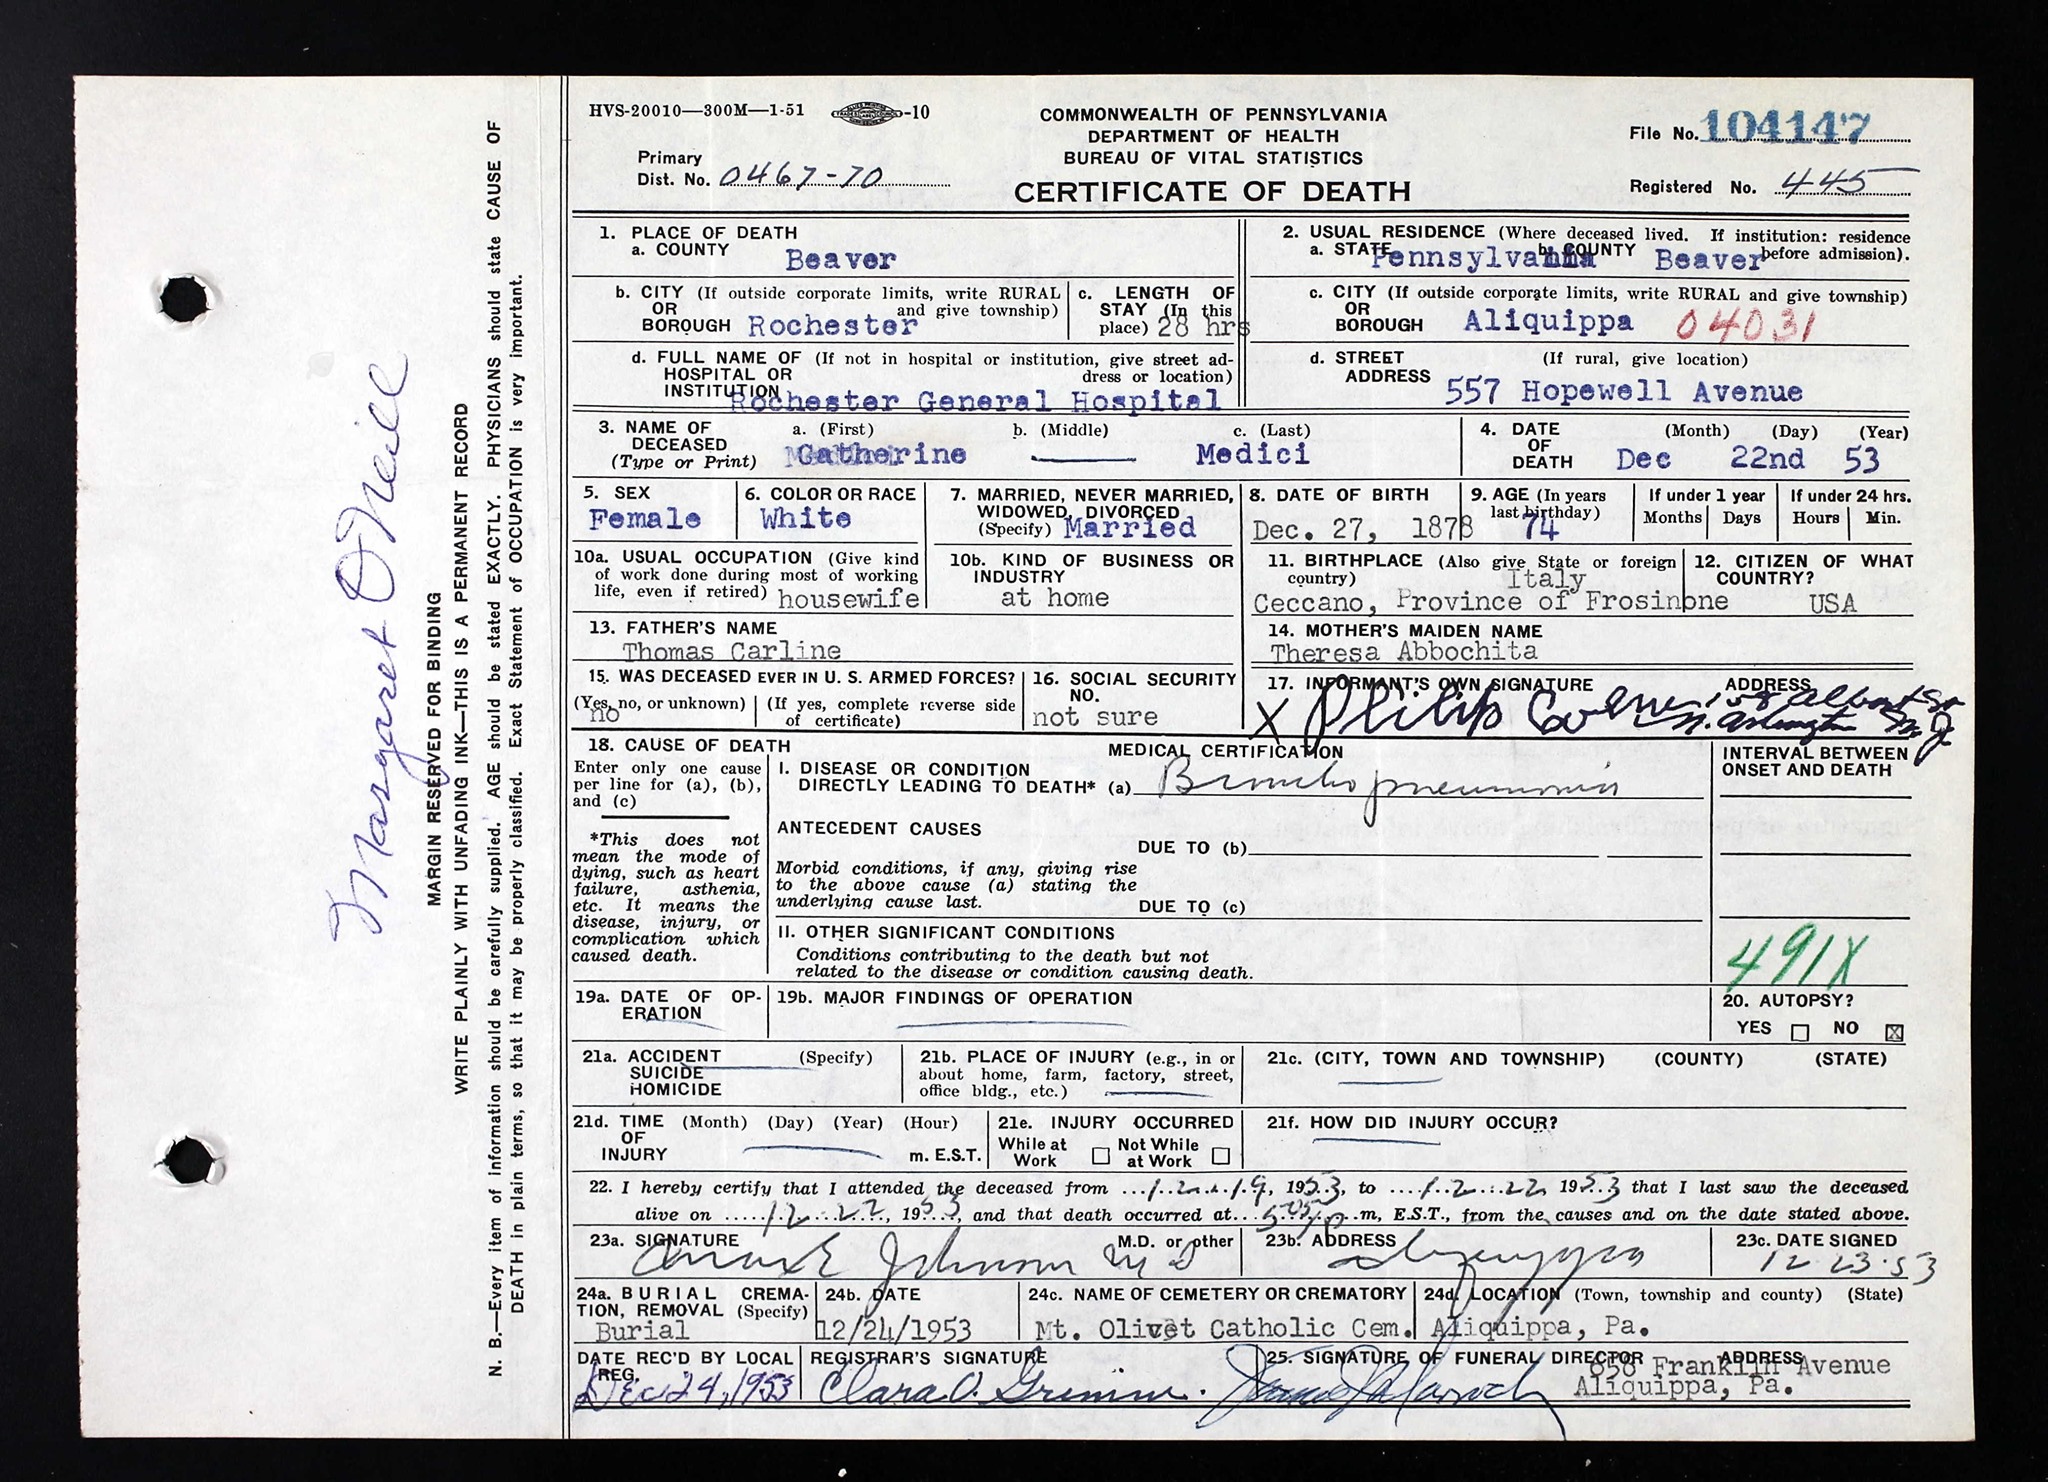 HVS-20010—300M—1-51 -10
COMMONWEALTH OF PENNSYLVANIA
DEPARTMENT OF HEALTH
BUREAU OF VITAL STATISTICS
CERTIFICATE OF DEATH
File No. 104147
Primary
Dist. No. 0467-70
Registered No. 445
1. PLACE OF DEATH
a. COUNTY Beaver
2. USUAL RESIDENCE (Where deceased lived. If institution: residence before admission).
a. STATE Pennsylvania b. COUNTY Beaver
b. CITY (If outside corporate limits, write RURAL
OR and give township)
BOROUGH Rochester
c. LENGTH OF
STAY (In this
place) 28 hrs
c. CITY (If outside corporate limits, write RURAL and give township)
OR
BOROUGH Aliquippa 04031
d. FULL NAME OF (If not in hospital or institution, give street ad-
HOSPITAL OR dress or location)
INSTITUTION Rochester General Hospital
d. STREET (If rural, give location)
ADDRESS 557 Hopewell Avenue
3. NAME OF a. (First) b. (Middle) c. (Last)
DECEASED
(Type or Print) Catherine Medici
4. DATE (Month) (Day) (Year)
OF
DEATH Dec 22nd 53
5. SEX
Female
6. COLOR OR RACE
White
7. MARRIED, NEVER MARRIED,
WIDOWED, DIVORCED
(Specify) Married
8. DATE OF BIRTH
Dec. 27, 1878
9. AGE (In years
last birthday)
74
If under 1 year
Months Days
If under 24 hrs.
Hours Min.
10a. USUAL OCCUPATION (Give kind
of work done during most of working
life, even if retired) housewife
10b. KIND OF BUSINESS OR
INDUSTRY
at home
11. BIRTHPLACE (Also give State or foreign
country) Italy
Ceccano, Province of Frosinone
12. CITIZEN OF WHAT
COUNTRY?
USA
13. FATHER'S NAME
Thomas Carline
14. MOTHER'S MAIDEN NAME
Theresa Abbochita
15. WAS DECEASED EVER IN U. S. ARMED FORCES?
(Yes, no, or unknown) (If yes, complete reverse side
no of certificate)
16. SOCIAL SECURITY
NO.
not sure
17. INFORMANT'S OWN SIGNATURE ADDRESS
X Philip
N. Arlington N. J.
18. CAUSE OF DEATH
Enter only one cause
per line for (a), (b),
and (c)
*This does not
mean the mode of
dying, such as heart
failure, asthenia,
etc. It means the
disease, injury, or
complication which
caused death.
MEDICAL CERTIFICATION
I. DISEASE OR CONDITION
DIRECTLY LEADING TO DEATH* (a) Bronchopneumonia
ANTECEDENT CAUSES
DUE TO (b)
Morbid conditions, if any, giving rise
to the above cause (a) stating the
underlying cause last.
DUE TO (c)
II. OTHER SIGNIFICANT CONDITIONS
Conditions contributing to the death but not
related to the disease or condition causing death.
INTERVAL BETWEEN
ONSET AND DEATH
491X
19a. DATE OF OP-
ERATION
19b. MAJOR FINDINGS OF OPERATION
20. AUTOPSY?
YES NO X
21a. ACCIDENT (Specify)
SUICIDE
HOMICIDE
21b. PLACE OF INJURY (e.g., in or
about home, farm, factory, street,
office bldg., etc.)
21c. (CITY, TOWN AND TOWNSHIP) (COUNTY) (STATE)
21d. TIME (Month) (Day) (Year) (Hour)
OF
INJURY m. E.S.T.
21e. INJURY OCCURRED
While at Not While
Work at Work
21f. HOW DID INJURY OCCUR?
22. I hereby certify that I attended the deceased from 12-19, 1953, to 12-22 1953 that I last saw the deceased
alive on 12-22, 1953, and that death occurred at 5:05 p m, E.S.T., from the causes and on the date stated above.
23a. SIGNATURE M.D. or other
Johnson M D
23b. ADDRESS
Aliquippa
23c. DATE SIGNED
12-23-53
24a. BURIAL CREMA-
TION, REMOVAL (Specify)
Burial
24b. DATE
12/24/1953
24c. NAME OF CEMETERY OR CREMATORY
Mt. Olivet Catholic Cem.
24d. LOCATION (Town, township and county) (State)
Aliquippa, Pa.
DATE REC'D BY LOCAL
REG.
Dec 24, 1953
REGISTRAR'S SIGNATURE
Clara O.
25. SIGNATURE OF FUNERAL DIRECTOR ADDRESS
858 Franklin Avenue
Aliquippa, Pa.
Margaret O'Neill
MARGIN RESERVED FOR BINDING
WRITE PLAINLY WITH UNFADING INK—THIS IS A PERMANENT RECORD
N. B.—Every item of information should be carefully supplied. AGE should be stated EXACTLY. PHYSICIANS should state CAUSE OF
DEATH in plain terms, so that it may be properly classified. Exact Statement of OCCUPATION is very important.